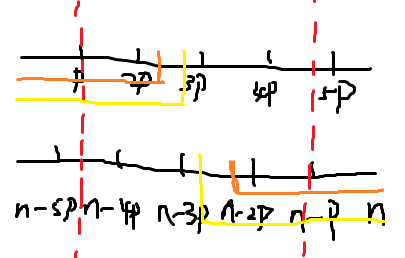 p 2p 3p 4p 5p
n-5p n-4p n-3p n-2p n-p n